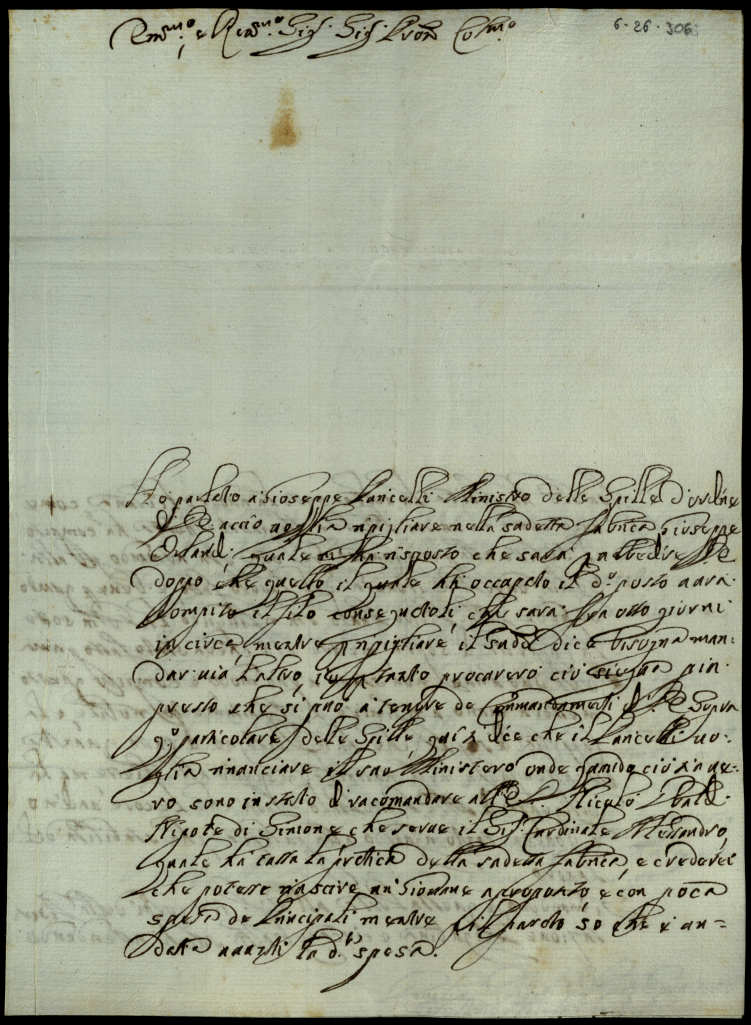 6·26·306
Em.mo e Reu.mo Sig.r Sig.r Pron Col.mo
Ho parlato a Gioseppe Lancelli Ministro delle Spille d'ordine
acciò uoglia ripigliare nella sudetta fabrica Giuseppe
Orlandi quale mi ha risposto che sarà
doppo che quello il quale ha occupato il d.o posto aurà
compito il filo consegnatoli che sarà fra otto giorni
in circa mentre p ripigliare il sud.o dice bisogna man=
dar uia l'altro in tanto procurerò ciò siegua piu
presto che si può a tenore de Commandamenti di Sopra
q.o particolare delle Spille qui si dice che il Lancelli uo=
glia rinunciare il suo Ministero onde quando ciò sia ue=
ro sono instato di racomandare all' Nicolò Ubaldi
Nipote di Simone che serue il Sig.r Cardinale Alessandro
quale ha tutta la prattica della sudetta fabrica e crederei
che potesse riuscire un Giouane a proposito e con poca
spesa de Principali mentre p il passato so che è an=
data auanti la d.a spesa.